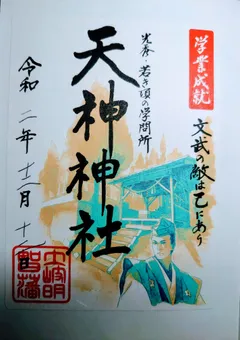 学業成就
文武の敵は己にあり
光秀・若き頃の学問所
天神神社
令和二年十二月十